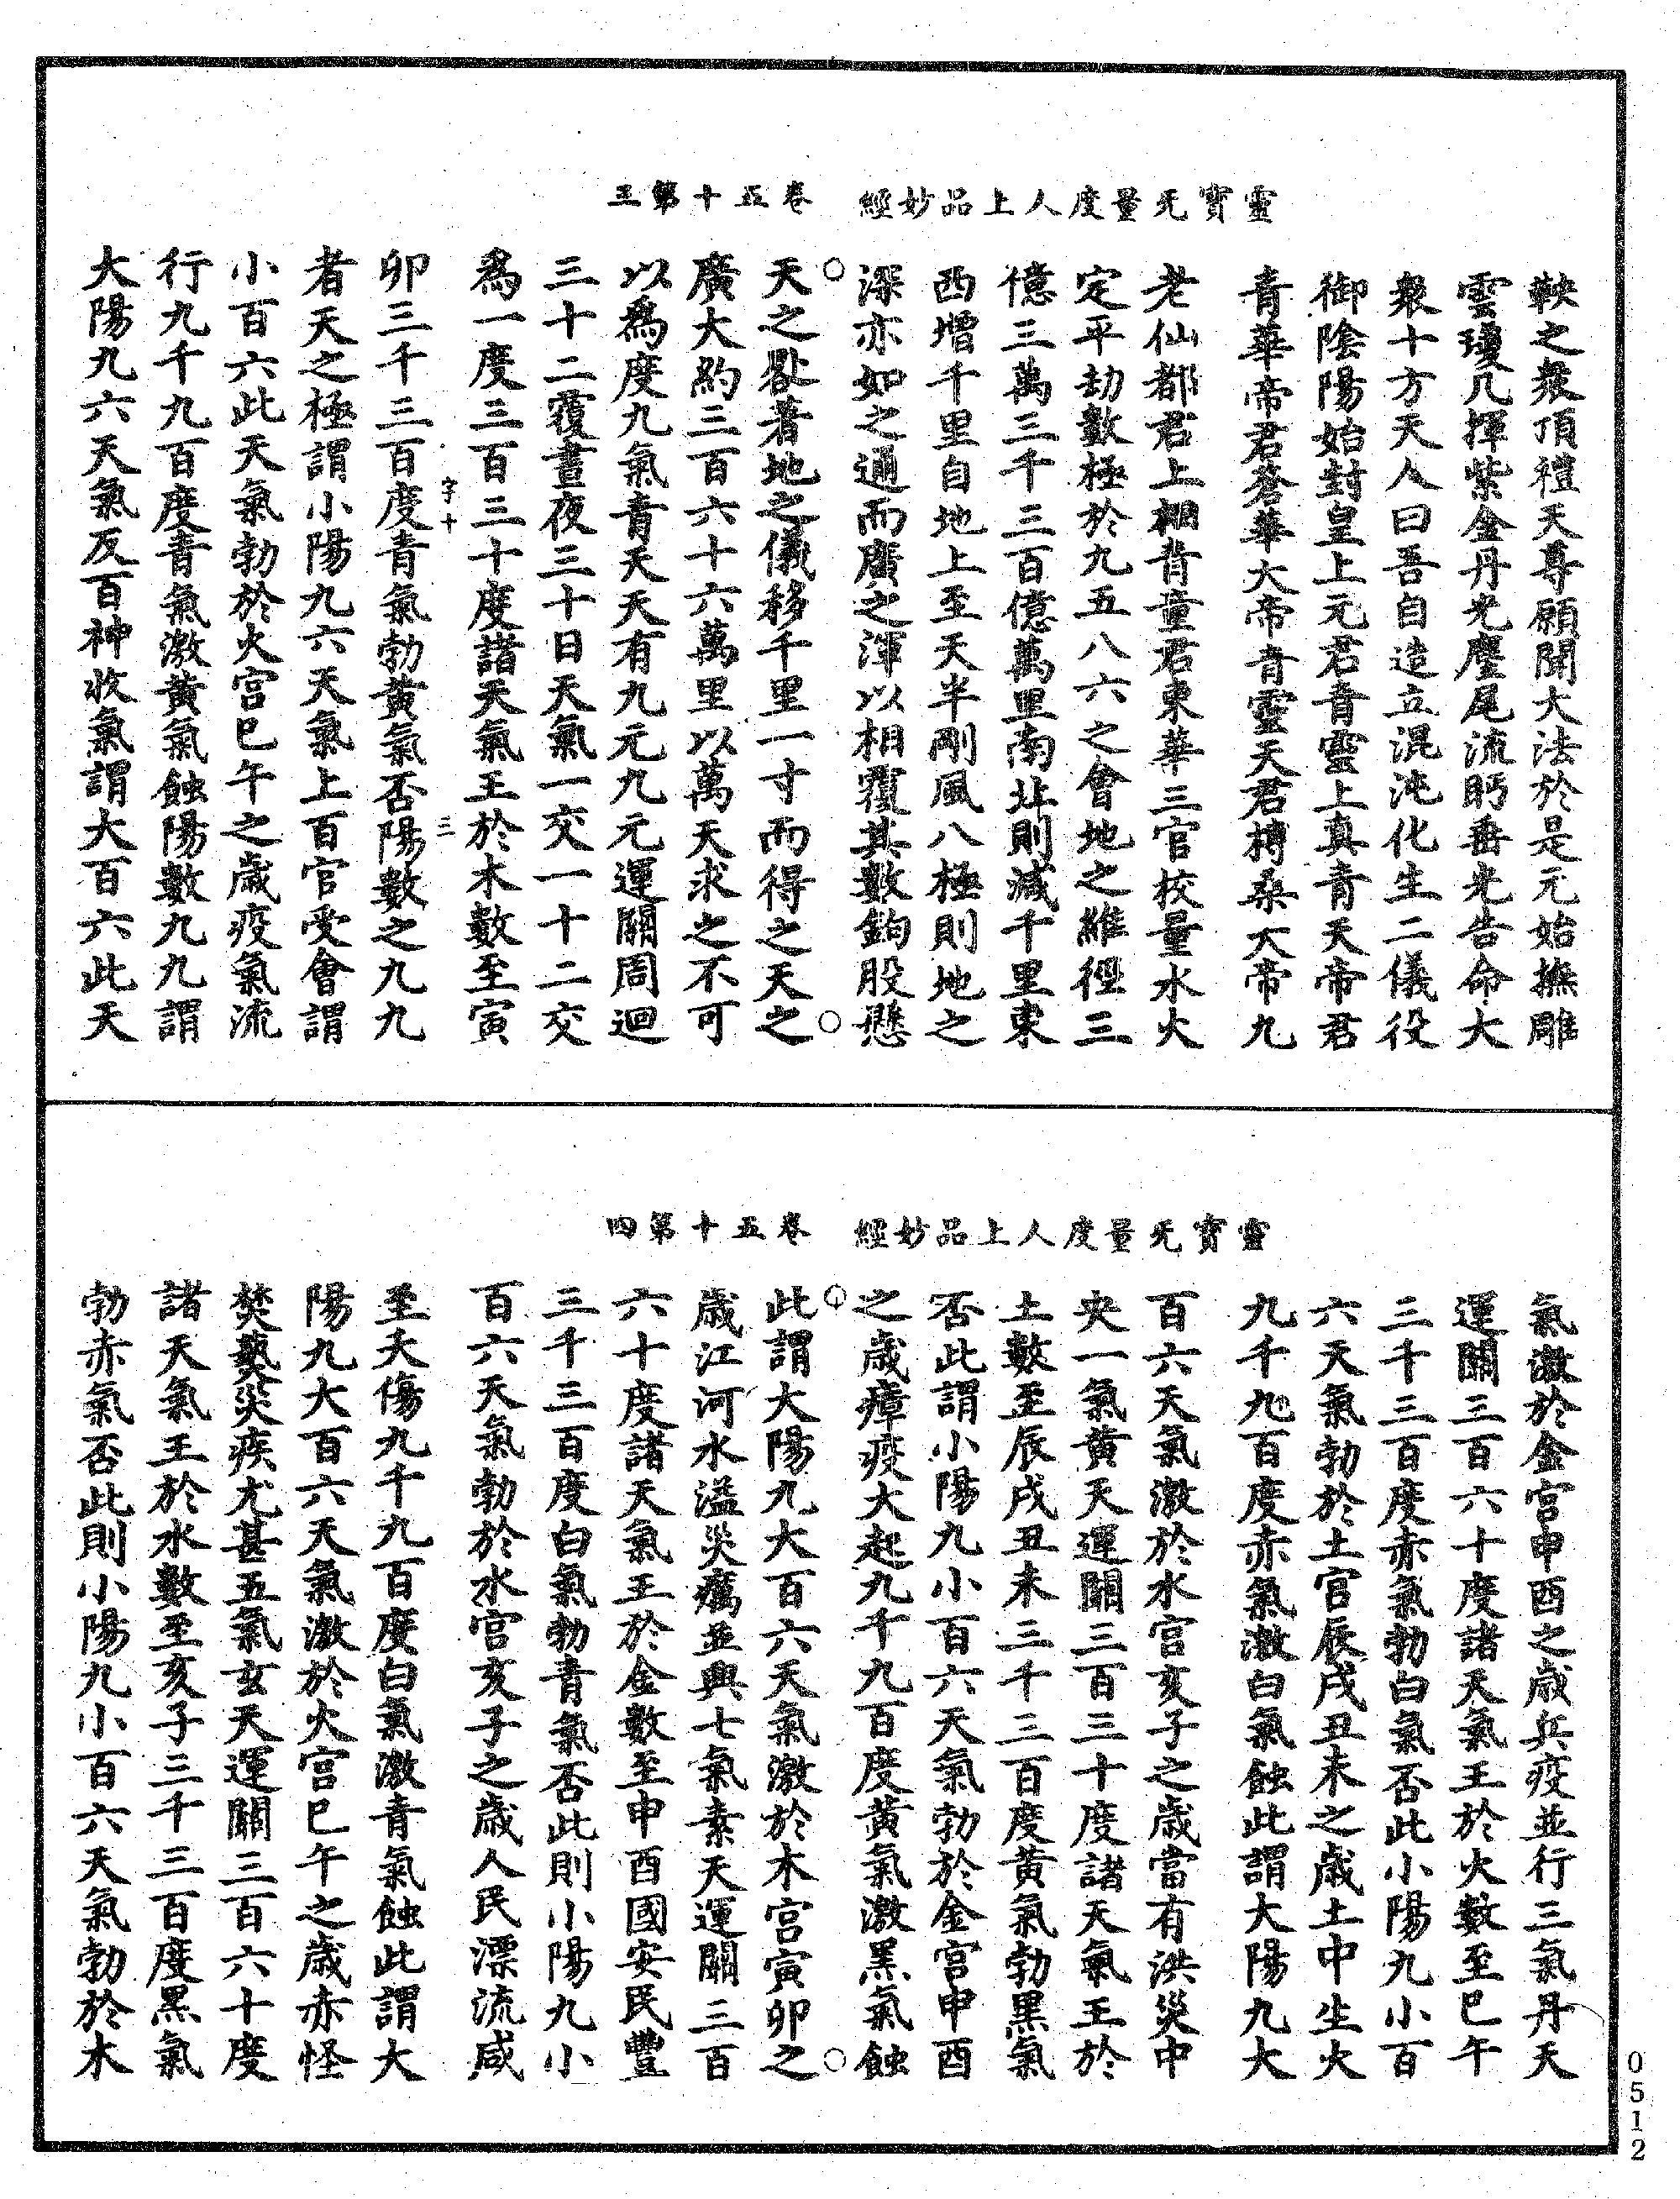 靈寶无量度人上品妙經　卷五十第三
鞅之衆頂禮天尊願聞大法於是元始撫雕
雲瓊几揮紫金丹光麈尾流眄垂光告命大
衆十方天人曰吾自造立混沌化生二儀役
御陰陽始封皇上元君青靈上真青天帝君
青華帝君蒼華大帝青靈天君榑桑大帝九
老仙都君上相青童君東華三官校量水火
定平劫數極於九五八六之會地之維徑三
億三萬三千三百億萬里南北則減千里東
西增千里自地上至天半剛風八極則地之
深亦如之通而廣之渾以相覆其數鉤股懸
天之晷著地之儀移千里一寸而得之天之
廣大約三百六十六萬里以萬天求之不可
以爲度九氣青天天有九元九元運關周迴
三十二覆晝夜三十日天氣一交一十二交
爲一度三百三十度諸天氣王於木數至寅
字十　三
卯三千三百度青氣勃黃氣否陽數之九九
者天之極謂小陽九六天氣上百官受會謂
小百六此天氣勃於火宮巳午之歲疫氣流
行九千九百度青氣激黃氣蝕陽數九九謂
大陽九六天氣反百神收氣謂大百六此天
靈寶无量度人上品妙經　卷五十第四
氣激於金宮申酉之歲兵疫並行三氣丹天
運關三百六十度諸天氣王於火數至巳午
三千三百度赤氣勃白氣否此小陽九小百
六天氣勃於土宮辰戌丑未之歲土中生火
九千九百度赤氣激白氣蝕此謂大陽九大
百六天氣激於水宮亥子之歲當有洪災中
央一氣黃天運關三百三十度諸天氣王於
土數至辰戌丑未三千三百度黃氣勃黑氣
否此謂小陽九小百六天氣勃於金宮申酉
之歲瘴疫大起九千九百度黃氣激黑氣蝕
此謂大陽九大百六天氣激於木宮寅卯之
歲江河水溢災癘並興七氣素天運關三百
六十度諸天氣王於金數至申酉國安民豐
三千三百度白氣勃青氣否此則小陽九小
百六天氣勃於水宮亥子之歲人民漂流咸
至夭傷九千九百度白氣激青氣蝕此謂大
陽九大百六天氣激於火宮巳午之歲赤怪
焚爇災疾尤甚五氣玄天運關三百六十度
諸天氣王於水數至亥子三千三百度黑氣
勃赤氣否此則小陽九小百六天氣勃於木
0512